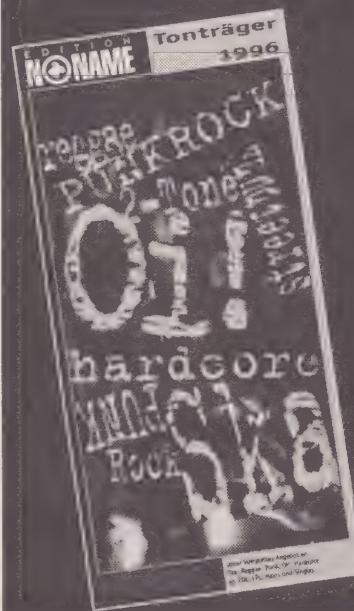 EDITION
NO NAME
Tonträger
1996
reggae
PUNKROCK
2-Tone
Streetpunk
Oi!
hardcore
PUNK
SKA
Rock